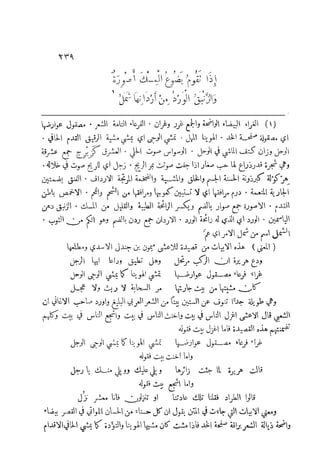 ٢٣٩
إِذَا تَقُومُ يَضُوعُ الْمِسْكُ أَصْوِرَةً
وَالزَّنْبَقُ الْوَرْدُ مِنْ أَرْدَانِهَا شَمِلُ ١
(١) الغراء البيضاء الواضحة والجمع غرر وغران . الفرعاء التامة الشعر . مصقول عوارضها
اي مصقولة صفحة الخد . الهوينا التمهل . تمشي الوجى اي يمشي مشية الرقيق القدم الحافي .
الوجل وزان كتف الماشي في الوحل . الوسواس صوت الحلي . العشرق كزبرج جمع عشرقة
وهي شجرة قدر ذراع لها حب صغار اذا جف صوتت بمر الريح . زجل اي الريح صوت في خلاله .
هركولة كبرذونة الحسنة الجسم والخلق والمشية والضخمة المرتجة الارداف . الفنق بضمتين
الجارية المنعمة . درم مرافقها اي لا تستبين كعوبها ومرافقها من الشحم واللحم . الاخمص باطن
القدم . الاصورة جمع صوار بالضم ويكسر الرائحة الطيبة والقليل من المسك . الزنبق دهن
الياسمين . الورد اي الذي له رائحة الورد . الاردان جمع ردن بالضم وهو الكم من الثوب .
الشمل اسم من شمل الامر اي عم
(المعنى) هذه الابيات من قصيدة للاعشى ميمون بن جندل الاسدي ومطلعها
ودع هريرة ان الركب مرتحل وهل تطيق وداعا ايها الرجل
غراء فرعاء مصقول عوارضها تمشي الهوينا كما يمشي الوجى الوحل
كأن مشيتها من بيت جارتها مر السحابة لا ريث ولا عجل
وهي طويلة جدًا تنوف عن الستين بيتًا من الشعر العربي البليغ واورد صاحب الاغاني ان
الشعبي قال الاعشى اغزل الناس في بيت واخنث الناس في بيت واشجع الناس في بيت وكلهم
تضمنتهم هذه القصيدة فاما اغزل بيت فقوله
غراء فرعاء مصقول عوارضها تمشي الهوينا كما يمشي الوجى الوحل
واما اخنث بيت فقوله
قالت هريرة لما جئت زائرها ويلي عليك وويلي منك يا رجل
واما اشجع بيت فقوله
قالوا الطراد فقلنا تلك عادتنا او تنزلون فانا معشر نزل
ومعنى الابيات التي جاءت في المتن يقول ان كل حسناء من الحسان اللواتي في القصر بيضاء
واضحة ذيالة الشعر براقة صفحة الخد فاذا مشت كان مشيها الهوينا والتؤدة كما يمشي الحافي الاقدام